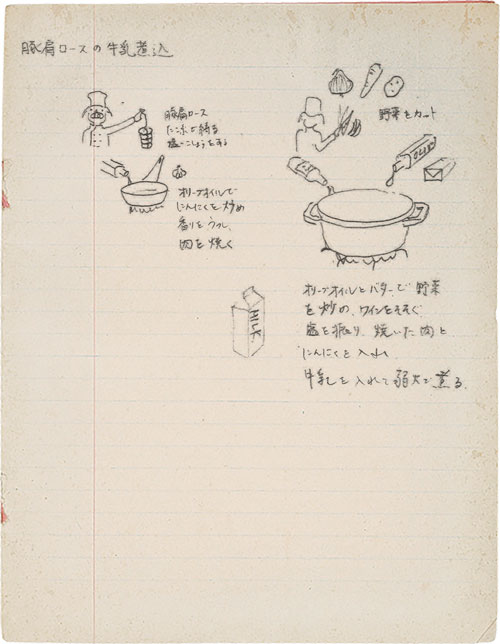 豚肩ロースの牛乳煮込
豚肩ロース
たこ糸で縛る
塩・こしょうをする
オリーブオイルで
にんにくを炒め
香りをうつし
肉を焼く
野菜をカット
MILK
オリーブオイルとバターで野菜
を炒め、ワインをそそぐ
塩を振り、焼いた肉と
にんにくを入れ
牛乳を入れて弱火で煮る